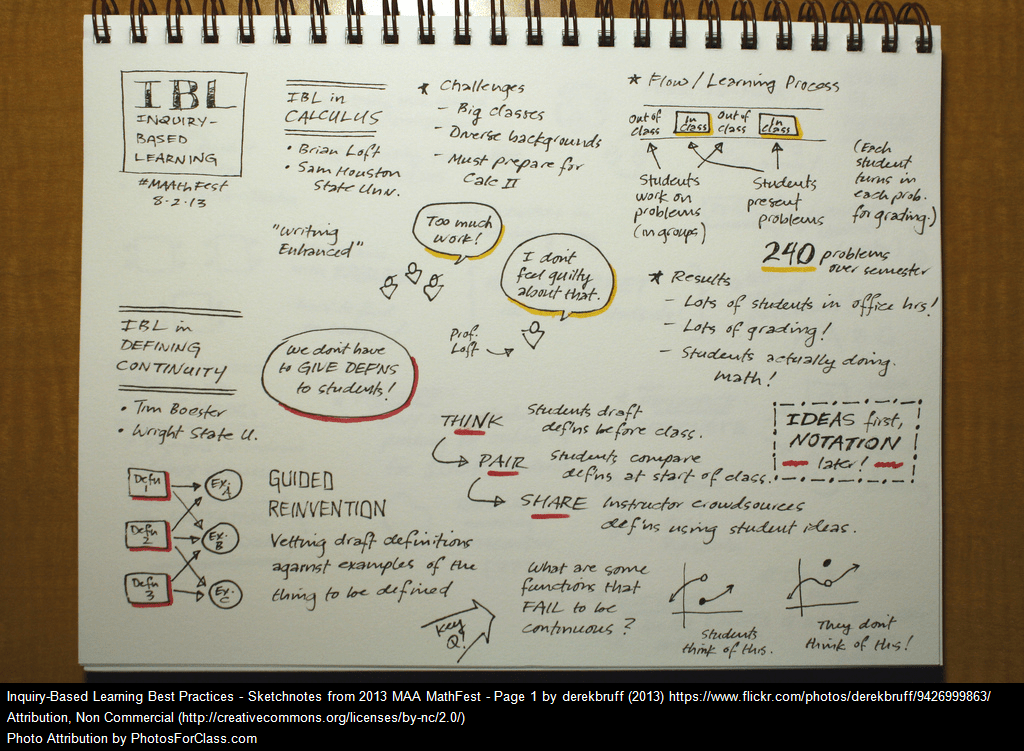 IBL
INQUIRY-
BASED
LEARNING
#MAAthFest
8.2.13
IBL in
CALCULUS
• Brian Loft
• Sam Houston
State Univ.
"Writing
Enhanced"
★ Challenges
- Big classes
- Diverse backgrounds
- Must prepare for
Calc II
Too much
work!
I don't
feel guilty
about that.
Prof.
Loft
★ Flow / Learning Process
out of
class
In
class
out of
class
In
class
Students
work on
problems
(in groups)
Students
present
problems
(Each
student
turns in
each prob.
for grading.)
240 problems
over semester
★ Results
- Lots of students in office hrs!
- Lots of grading!
- Students actually doing
math!
IBL in
DEFINING
CONTINUITY
• Tim Boester
• Wright State U.
We don't have
to GIVE DEF'NS
to students!
THINK
Students draft
def'ns before class.
PAIR
Students compare
def'ns at start of class.
SHARE
Instructor crowdsources
def'ns using student ideas.
IDEAS first,
NOTATION
later!
Defn
1
Defn
2
Defn
3
Ex.
A
Ex.
B
Ex.
C
GUIDED
REINVENTION
Vetting draft definitions
against examples of the
thing to be defined
Key
Q!
What are some
functions that
FAIL to be
continuous?
Students
think of this.
They don't
think of this!
Inquiry-Based Learning Best Practices - Sketchnotes from 2013 MAA MathFest - Page 1 by derekbruff (2013) https://www.flickr.com/photos/derekbruff/9426999863/
Attribution, Non Commercial (http://creativecommons.org/licenses/by-nc/2.0/)
Photo Attribution by PhotosForClass.com